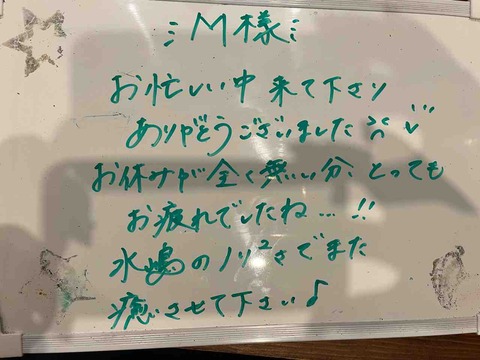 M様
お忙しい中来て下さり
ありがとうございました
お休みが全く無い分、とっても
お疲れでしたね...!!
水嶋のノリ²さでまた
癒させて下さい♪